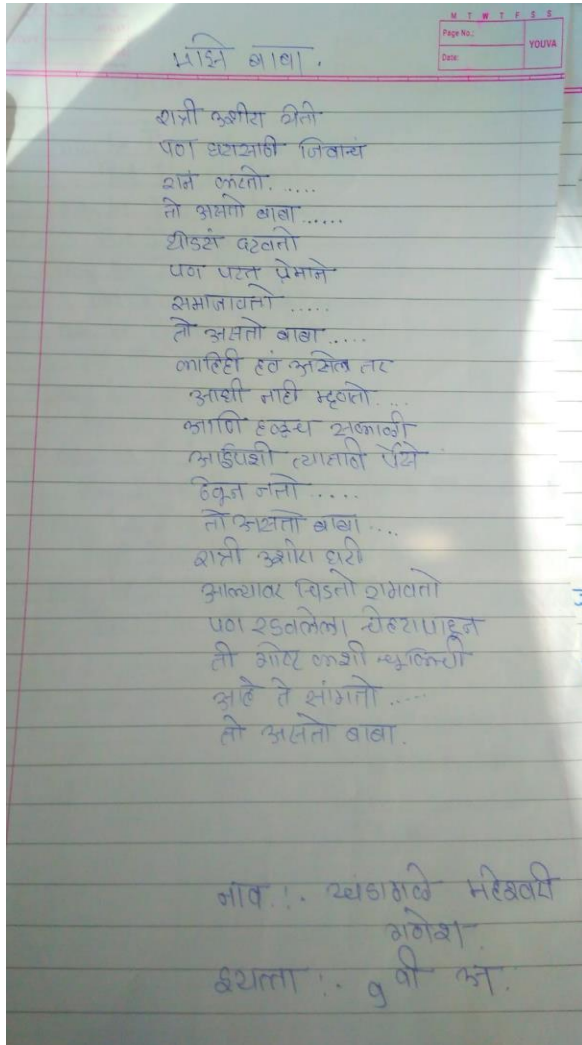 M T W T F S S
Page No.:
YOUVA
Date:
माझे बाबा .
रात्री उशीरा येतो
पण घरासाठी जिवाचं
रान करतो......
तो असतो बाबा.....
धीडसं दटवतो
पण परत प्रेमाने
समाजावतो .....
तो असतो बाबा.....
काहिही हवं असेल तर
आधी नाही म्हणतो....
आणि हळूच सकाळी
आईपशी त्यासाठी पैसे
ठेवून जतो .....
तो असतो बाबा....
रात्री उशीरा घरी
आल्यावर चिडतो रागवतो
पण रडवलेला चेहरा पाहून
ती गोष्ट कशी चूकिची
आहे ते सांगतो.....
तो असतो बाबा.
नाव :. खंडागळे महेश्वरी
गणेश.
इयत्ता :. 9 वी अ.